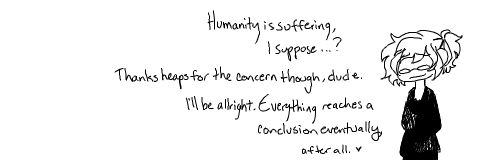 Humanity is suffering,
I suppose...?
Thanks heaps for the concern though, dude.
I'll be alright. Everything reaches a
conclusion eventually,
after all. ♥